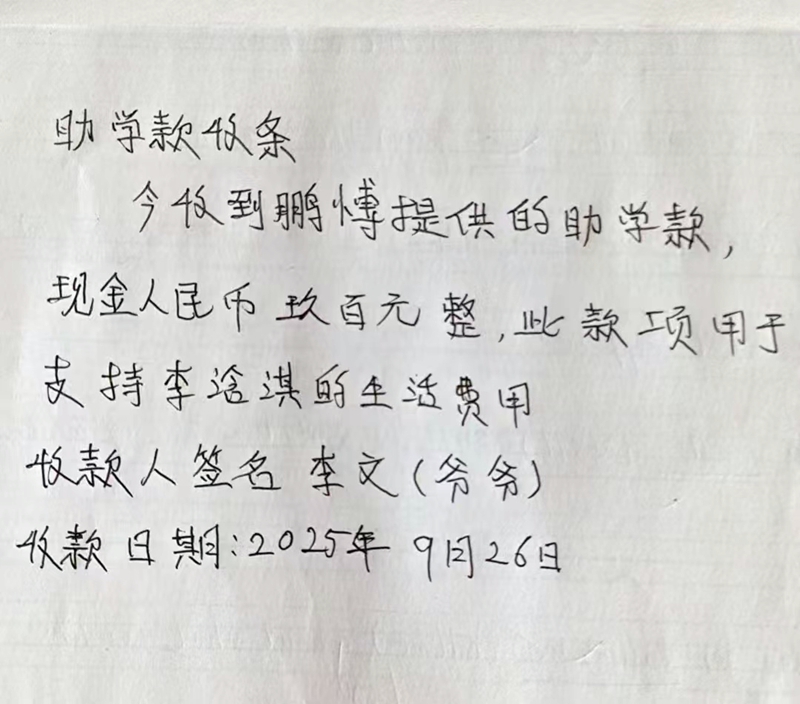 助学款收条
今收到鹏博提供的助学款，
现金人民币玖百元整，此款项用于
支持李浛淇的生活费用
收款人签名 李文（爷爷）
收款日期：2025年 9月26日